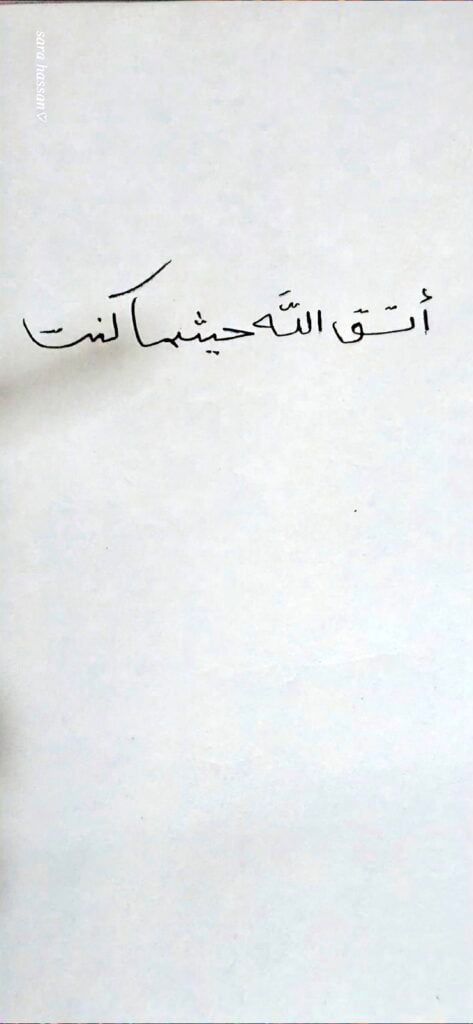 sara hassan ♡
أتق اللَّه حيثما كنت